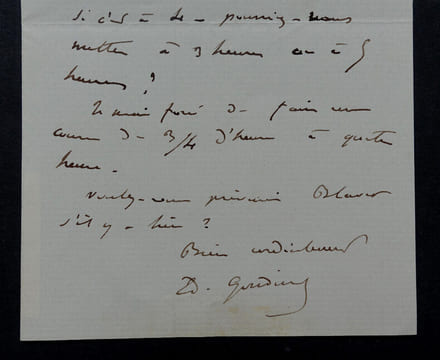 si c'est à 4 - pourriez-vous
mettre à 3 heures ou à 5
heures ?
Je suis forcé de faire une
course de 3/4 d'heure à quatre
heures.
voulez-vous prévenir
s'il y a lieu ?
Bien cordialement